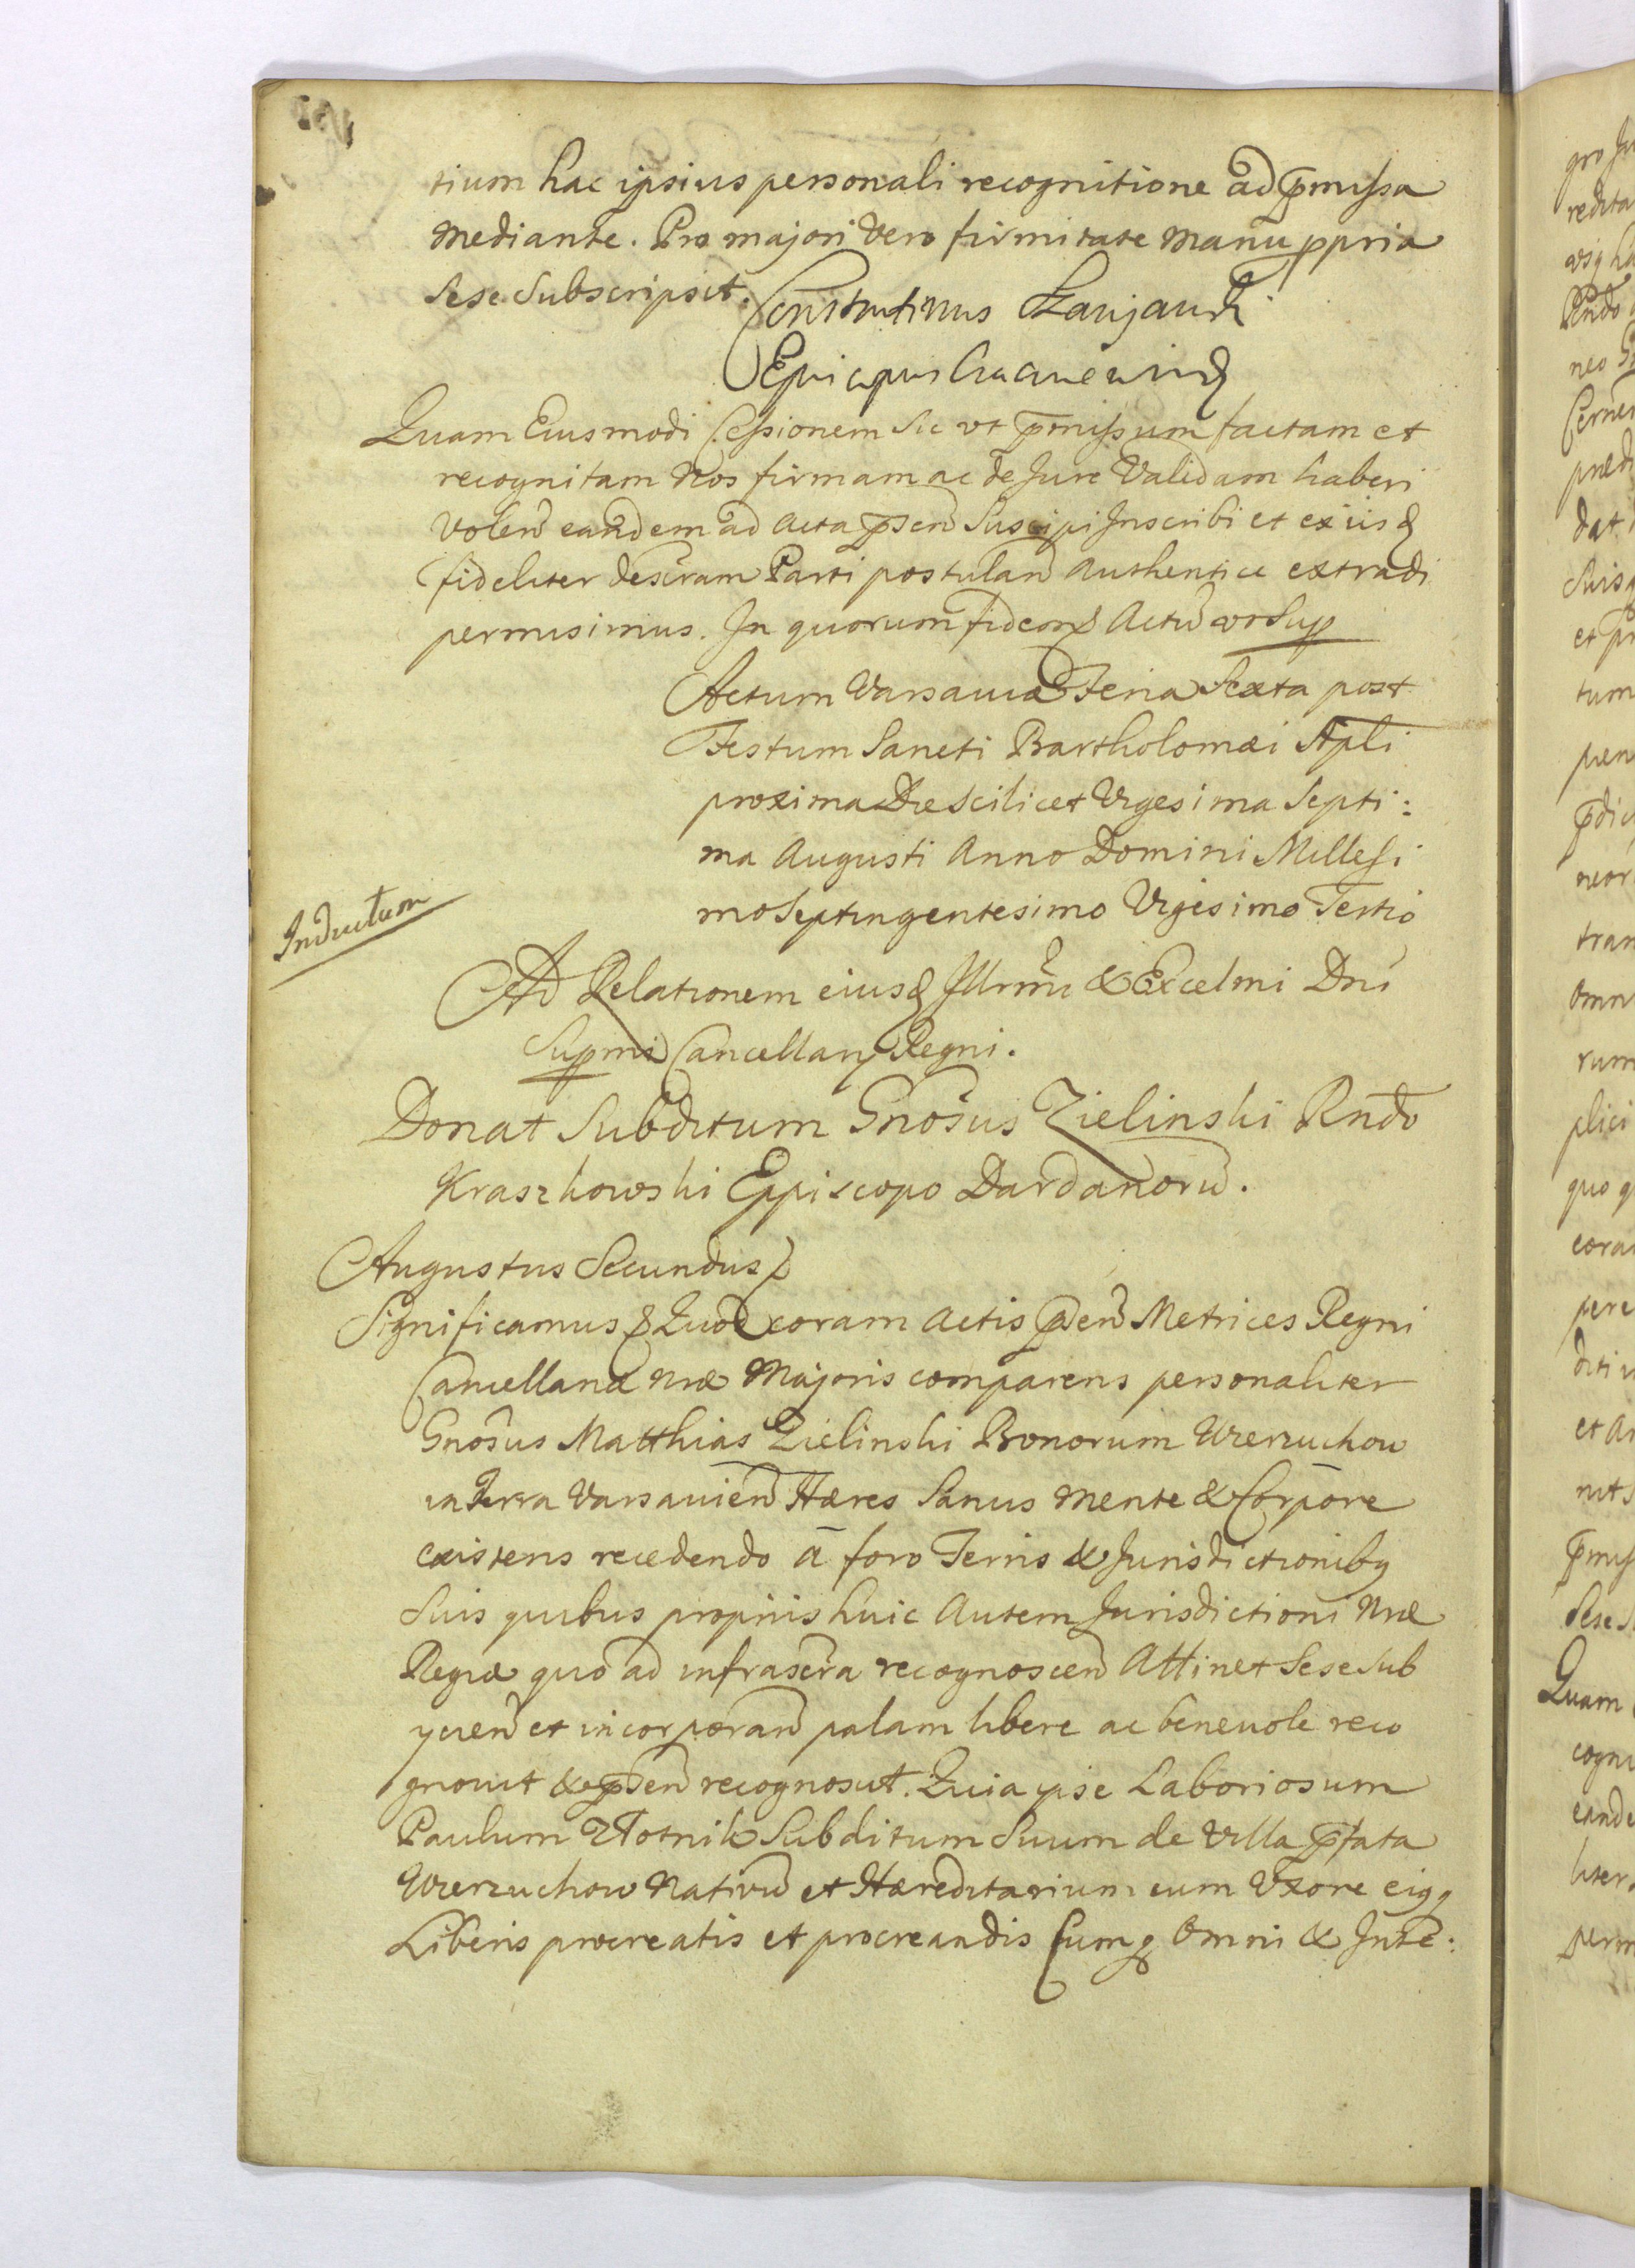 tium hac ipsius personali recognitione ad p̃missa
mediante. Pro majori vero firmitate manu ppria
sese subscripsit. Constantinus Szaniawski
Episcopus Cracoviensis
Quam Eiusmodi Cessionem sic vt p̃missum factam et
recognitam Nos firmam ac de Jure Validam haberi
volen̄ eandem ad Acta p̃sen̄ Suscipi Inscribi et ex iisd
fideliter descr̃am Parti postulan̄ Authentice extradi
permisimus. In quorum fidem Actũ vt Sup
Actum Varsaviæ Feria Sexta post
Festum Sancti Bartholomæi Apli
proxima Die scilicet Vigesima Septi:
ma Augusti Anno Domini Millesi
mo Septingentesimo Vigesimo Tertio
Inductum
Ad Relationem eiusd Illrmi & Excelmi Dni
Supmi Cancellarij Regni.
Donat Subditum Gnosus Zielinski Rndo
Kraszkowski Eppiscopo Dardanorũ.
Augustus Secundus
Significamus Quod coram Actis p̃sen̄ Metrices Regni
Cancellariæ Nræ Majoris comparens personaliter
Gnosus Matthias Zielinski Bonorum Wierzuchow
in Terra Varsavien̄ Hæres Sanus mente & Corpore
existens recedendo a foro Terris & Jurisdictionibq
suis quibus proprijs huic Autem Jurisdictioni Nræ
Regiæ quo ad infrascr̃a recognoscen̄ Attinet Sese sub
ycien̄ et incorporan̄ palam libere ac benevole reco
gnovit & p̃sen̄ recognoscit. Quia ipse Laboriosum
Paulum Złotnik Subditum Suum de Villa p̃fata
Wierzuchow Nativũ et Hæreditarium cum Vxore eiqq
Liberis procreatis et procreandis Cumq Omni & Inte: